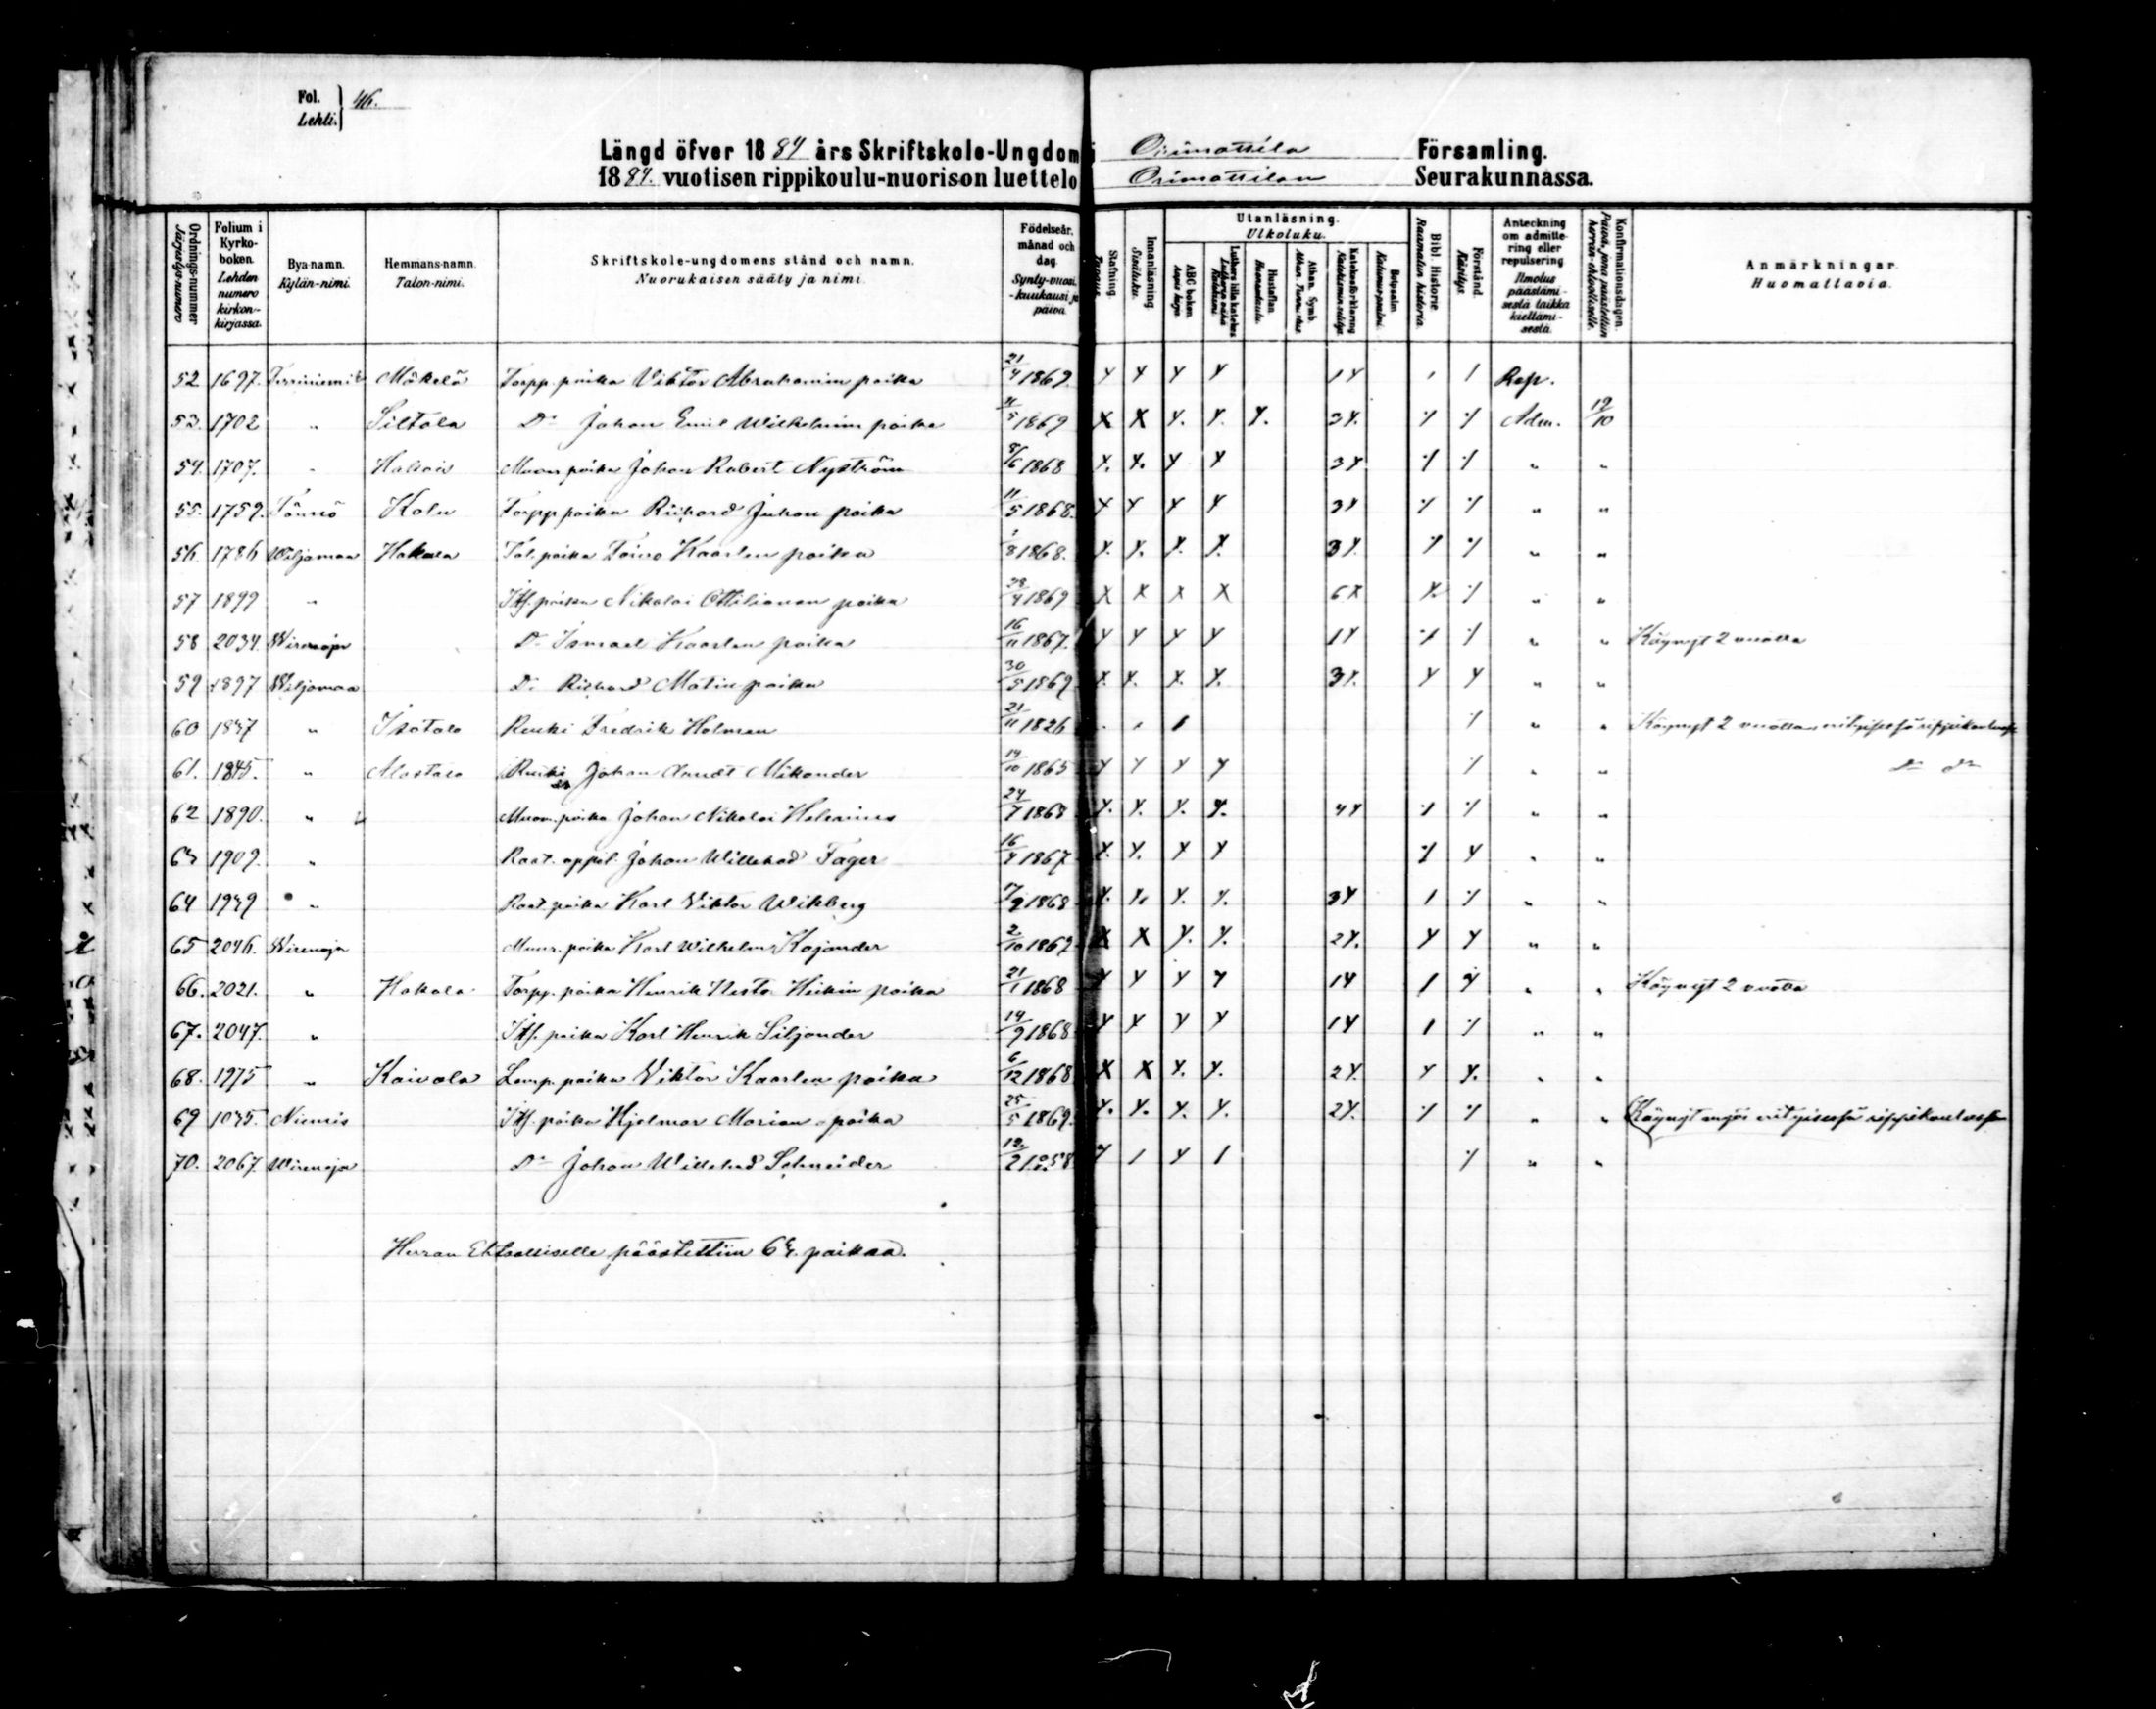 Fol. 46.
Lehti.
Längd öfver 1884 års Skriftskole-Ungdom i Orimattila Församling.
1884. vuotisen rippikoulu-nuorison luettelo Orimattilan Seurakunnassa.
Ordningsnummer Järjestysnumero
Folium i Kyrko-boken. Lehden numero kirkon-kirjassa.
Bya-namn. Kylän-nimi.
Hemmans-namn. Talon-nimi.
Skriftskole-ungdomens stånd och namn. Nuorukaisen sääty ja nimi.
Födelseår, månad och dag. Synty-vuosi, -kuukausi ja päivä
Stafning. Tavaus.
Innanläsning. Sisäluku.
Utanläsning. Ulkoluku.
ABC boken.
Luthers lilla katekes
Hustaflan. Huoneentaulu.
Athan. Symb.
Katekesförklaring
Botpsalm.
Bibl. Historie Raamatun historia.
Förstånd. Käsitys.
Anteckning om admittering eller repulsering Ilmotus päästämisestä taikka kieltämisestä.
Konfirmationsdagen. Päivä, jona päästettiin herran-ehtoolliselle.
Anmärkningar. Huomattavia.
52 1697. Mäkelä Torpp. poika Viktor Abrahamin poika 21/4 1869. Y Y Y Y 1Y 1 1 Rep.
53. 1702 " Siltala D:o Johan Emil Wilhelmin poika 11/5 1869 X X Y. Y. Y. 3Y. ·/· ·/· Adm. 12/10
54. 1707. " Muon poika Johan Robert Nyström 8/6 1868 Y. Y. Y Y 3Y ·/· ·/· " "
55. 1759. Tönnö Kolu Torpp poika Richard Juhon poika 11/5 1868. Y Y Y Y 3Y ·/· ·/· " "
56. 1786 Wiljamaa Hakala Tal. poika Toivo Kaarlen poika 1868. Y. Y. Y. Y. 3Y. ·/· ·/· " "
57 1899 " Its. poika Nikolai Ottilianan poika 28/4 1869 X X X X 6X Y. ·/· " "
58 2034. Wirenoja D:o Ismael Kaarlen poika 16/11 1867. Y Y Y Y 1Y ·/· ·/· " " Käynyt 2 vuotta
59 1897 Wiljamaa D:o Richard Matin poika 30/5 1869 Y. Y. Y. Y. 3Y. Y Y " "
60 1847 " Isotalo Ruuki Fredrik Holmen 21/11 1826 . . 1 ·/· " " Käynyt 2 vuottan erityisessä rippikoulussa
61. 1845. " Alastalo Ruuki Johan 14/10 1865 Y Y Y Y ·/· " " D:o D:o
62 1890. " Muon. poika Johan Nikolai Helenius 24/7 1868 Y. Y. Y. Y. 4Y ·/· ·/· " "
63 1909. " Raat. oppil. Johan Willehad Fager 16/4 1867 Y. Y. Y Y ·/· Y " "
64 1949 " Raat. poika Karl Viktor Wikberg 1868 Y. Y. Y. Y. 3Y 1 ·/· " "
65 2046. Wirenoja Muur. poika Karl Wilhelm Kajander 2/10 1869 X X Y. Y. 2Y. Y Y " "
66. 2021. " Hakala Torpp. poika Henrik Nestor Heikin poika 21/1 1868 Y Y Y Y 1Y 1 Y " " Käynyt 2 vuotta
67. 2047. " Its. poika Karl Henrik Siljander 14/9 1868 Y Y Y Y 1Y 1 ·/· " "
68. 1975 " Kaivola Lamp. poika Viktor Kaarlen poika 6/12 1868 X X Y. Y. 2Y. Y Y. " "
69 1035. Niemis Its. poika Hjalmar Marian poika 25/5 1869. Y. Y. Y. Y. 2Y. ·/· ·/· " " Käynyt myös erityisessä rippikoulussa
70. 2067. Wirenoja D:o Johan Willehad Schneider 12/2 1858 Y 1 Y 1 ·/· " "
Herran Ehtoolliselle päästettiin 64. poikaa.